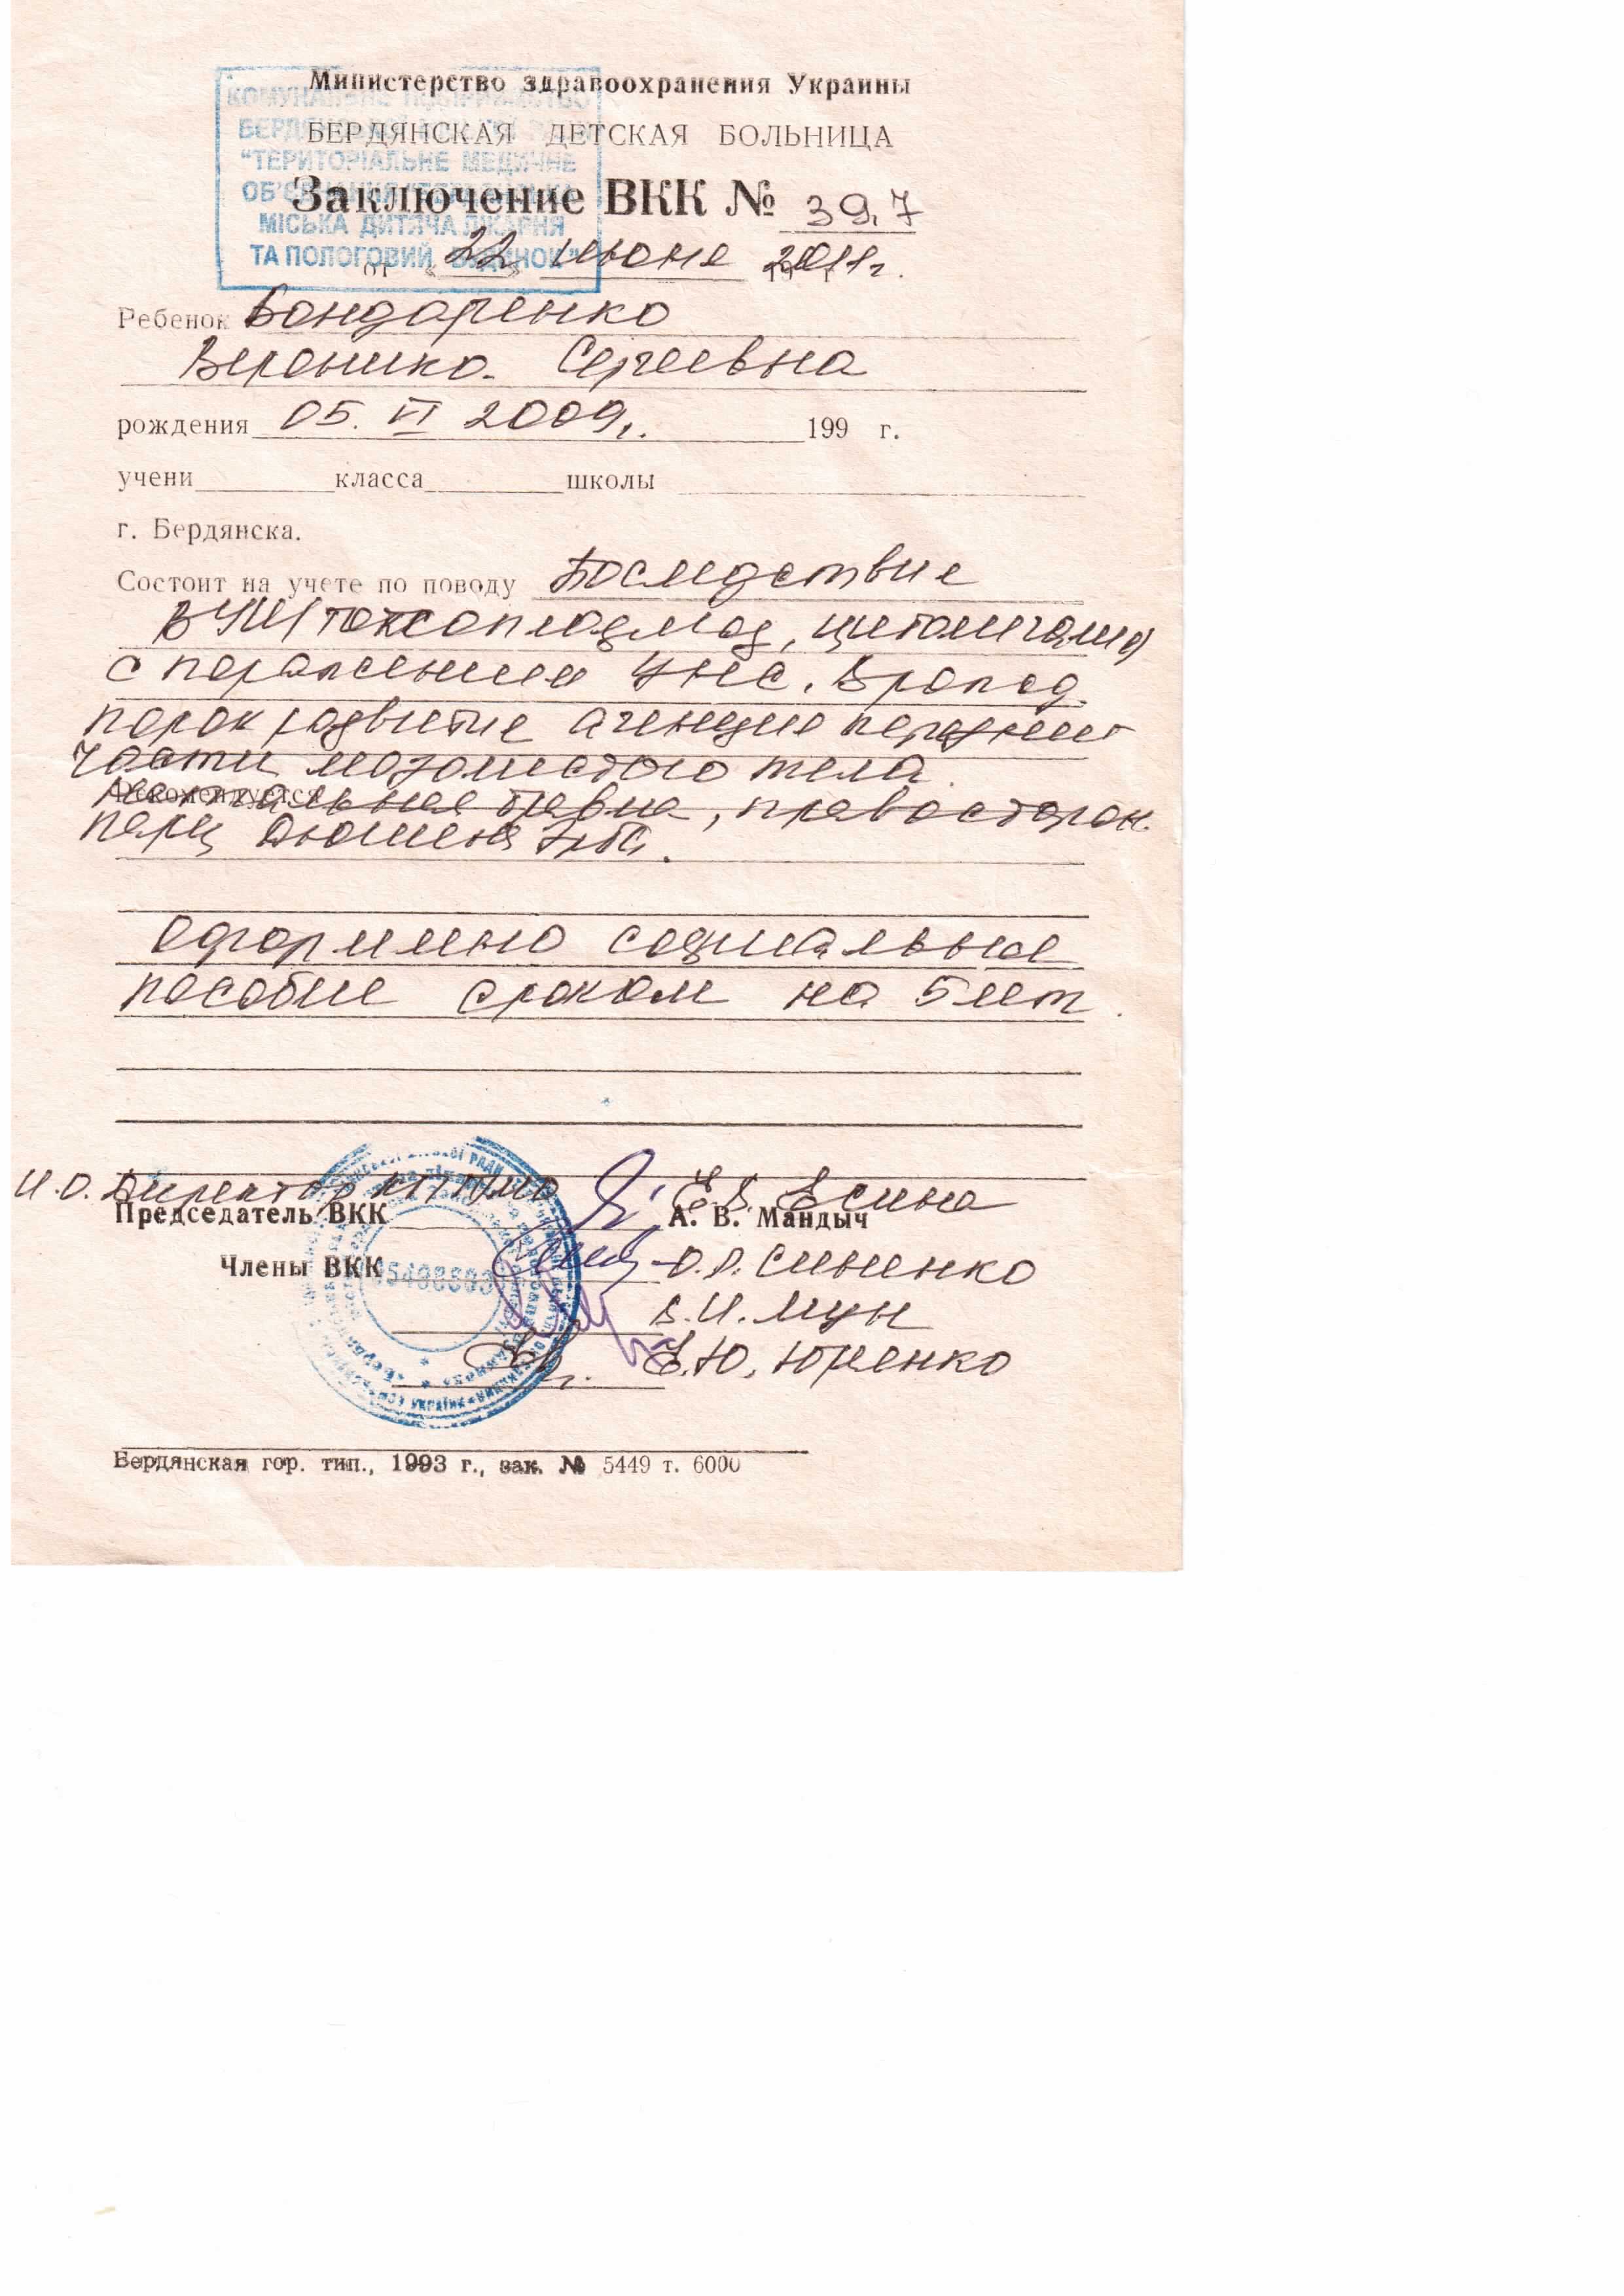 Министерство здравоохранения Украины
БЕРДЯНСКАЯ ДЕТСКАЯ БОЛЬНИЦА
КОМУНАЛЬНЕ ПІДПРИЄМСТВО
"ТЕРИТОРІАЛЬНЕ МЕДИЧНЕ
МІСЬКА ДИТЯЧА ЛІКАРНЯ
ТА ПОЛОГОВИЙ БУДИНОК"
Заключение ВКК № 397
от "22" июня 2011г.
Ребенок Бондаренко
Вероника Сергеевна
рождения 05. VI 2009г. 199 г.
учени класса школы
г. Бердянска.
Состоит на учете по поводу Последствие
ВУИ (токсоплазмоз, цитомегалия)
с поражением ЦНС. Врожд.
порок развития агенезия передней
части мозолистого тела.
Рекомендуется
, правосторон.
парез Дюшена Эрба.
Оформлено социальное
пособие сроком на 5 лет.
И.О. Директор КП ТМО Е.В. Есина
Председатель ВКК А. В. Мандыч
Члены ВКК
В.И. Мун
Е.Ю. Юренко
Бердянская гор. тип., 1993 г., зак. № 5449 т. 6000